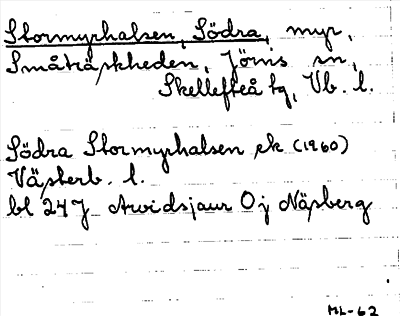 Stormyrhalsen, Södra, myr,
Småträskheden, Jörns sn,
Skellefteå tg, Vb. l.
Södra Stormyrhalsen ek (1960)
Västerb. l.
bl 24 J Arvidsjaur O; j Näsberg
ML-62